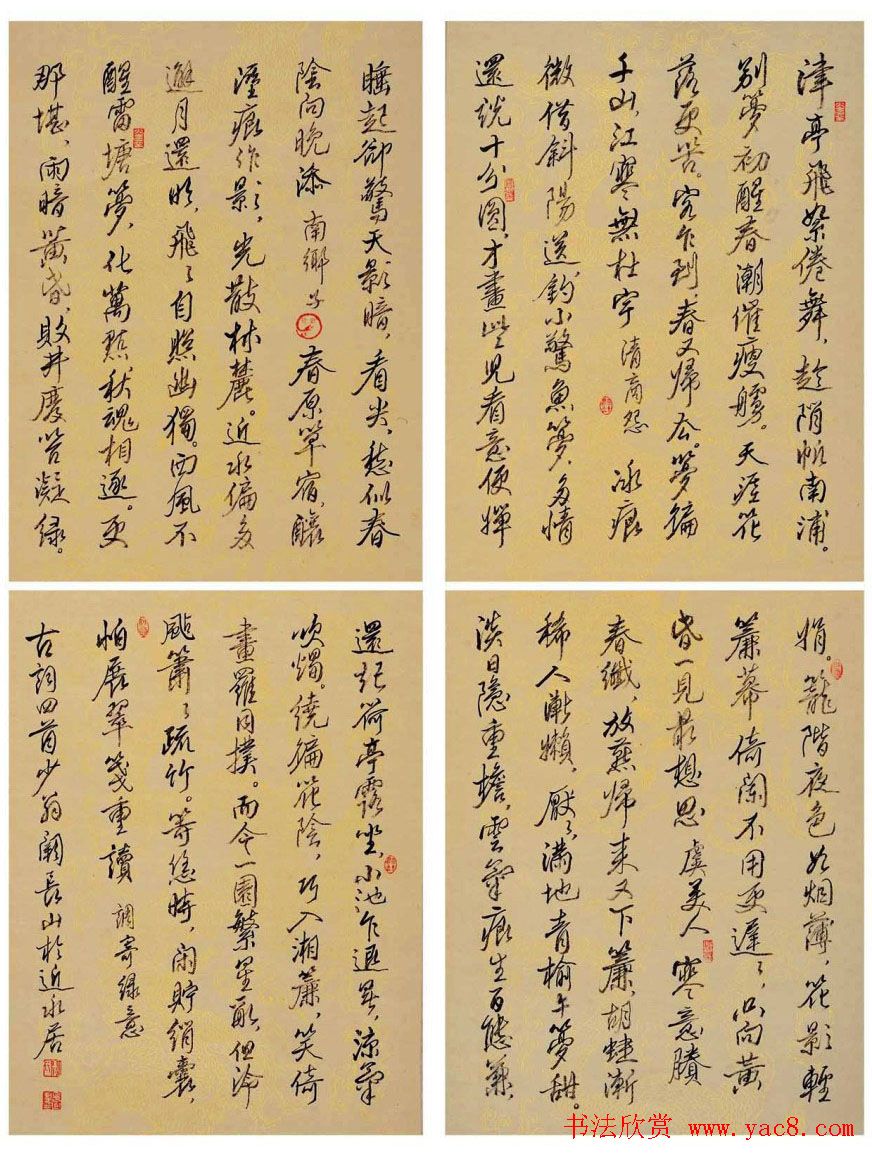 津亭飛絮倦舞,趁帆南浦。
別夢初醒春潮催瘦艣。天涯花
落更苦。客乍到、春又歸去。夢徧
千山,江寒無杜宇 清商怨 冰痕
微借斜陽送,釣小驚魚夢,多情
還說十分圓,才畫些兒眉意便嬋
娟。籠階夜色如烟薄,花影輕
簾幕倚闌不用更遲〻,只向黃
昏一見最想思 虞美人 寒意賸
春纖,放燕歸來又下簾,胡蝶漸
稀人漸懶,厭〻,滿地青榆午夢甜。
淡日隱重檐,雲氣痕生百態兼
睡起卻驚天影暗,看尖,愁似春
陰向晚添 南鄉子 春原草宿,釀
溼痕作影,光散林麓。近水偏多
避月還明,飛〻自照幽獨。西風不
醒雷塘夢,化萬點秋魂相逐。更
那堪、雨暗黃昏,敗井廢苔凝綠。
還記荷亭露坐,小池乍過,涼氣
吹燭。繞徧花陰,巧入湘簾,笑倚
畫羅同撲。而今一園繁星亂,但泠
颸蕭〻疏竹。等恁時,閑貯絹囊,
怕展翠箋重讀 調寄綠意
古詞四首少翁闕長山於近水居
书法欣赏 www.yac8.com